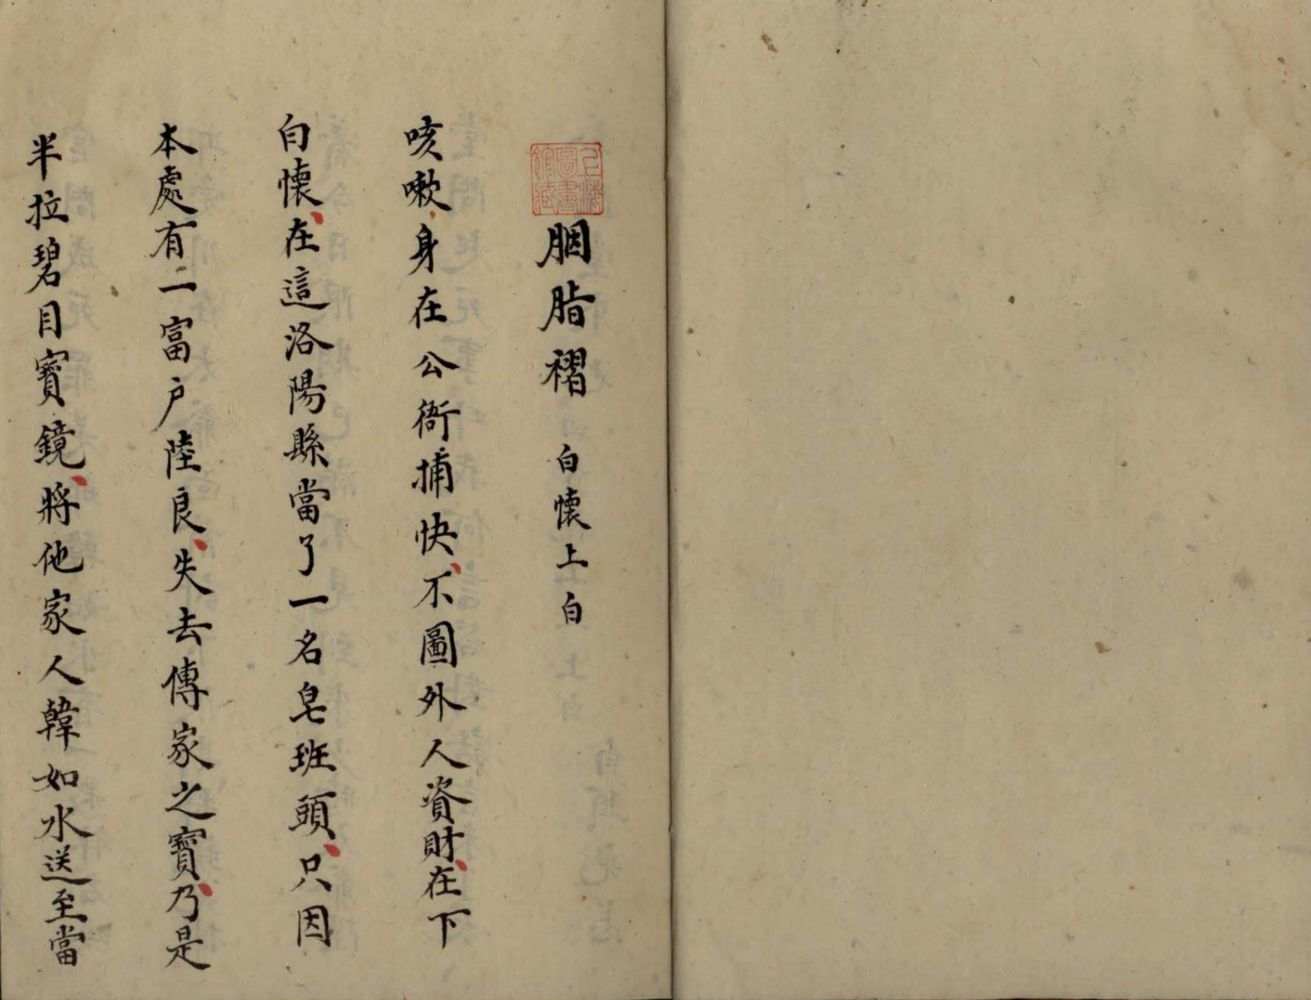 胭脂褶 白懷上白
咳嗽身在公衙捕快、不圖外人資財、在下
白懷、在這洛陽縣當了一名皂班頭、只因
本處有一富户陸良、失去傳家之寶、乃是
半拉碧目寶鏡、將他家人韓如水送至當